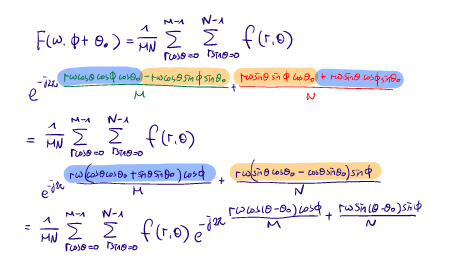 F(ω, ϕ + θ₀) = 1/MN Σ_{rcosθ=0}^{M-1} Σ_{rsinθ=0}^{N-1} f(r, θ)
e^{-j2π (rωcosθcosϕcosθ₀ - rωcosθsinϕsinθ₀)/M + (rωsinθsinϕcosθ₀ + rωsinθcosϕsinθ₀)/N}
= 1/MN Σ_{rcosθ=0}^{M-1} Σ_{rsinθ=0}^{N-1} f(r, θ)
e^{-j2π rω(cosθcosθ₀ + sinθsinθ₀)cosϕ/M + rω(sinθcosθ₀ - cosθsinθ₀)sinϕ/N}
= 1/MN Σ_{rcosθ=0}^{M-1} Σ_{rsinθ=0}^{N-1} f(r, θ) e^{-j2π rωcos(θ-θ₀)cosϕ/M + rωsin(θ-θ₀)sinϕ/N}